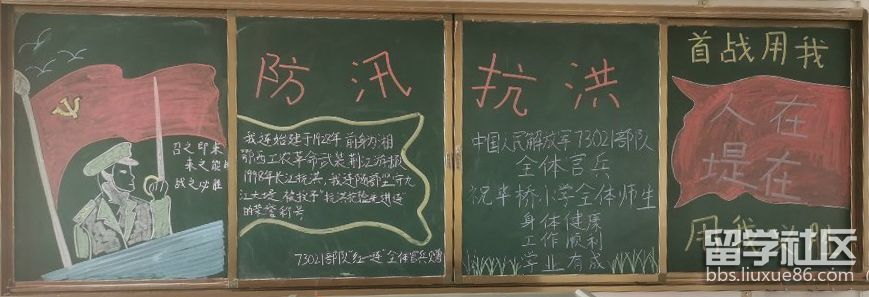 召之即来
来之能战
战之必胜
防汛
我连始建于1928年前身为湘
鄂西工农革命武装荆江游击队
1998年长江抗洪,我连防御坚守九
江大堤 被授予"抗洪抢险先进连"
的荣誉称号
73021部队"红一连"全体官兵赠
抗洪
中国人民解放军73021部队
全体官兵
祝华桥小学全体师生
身体健康
工作顺利
学业有成
首战用我
人在
堤在
用我
留学社区
bbs.liuxue86.com